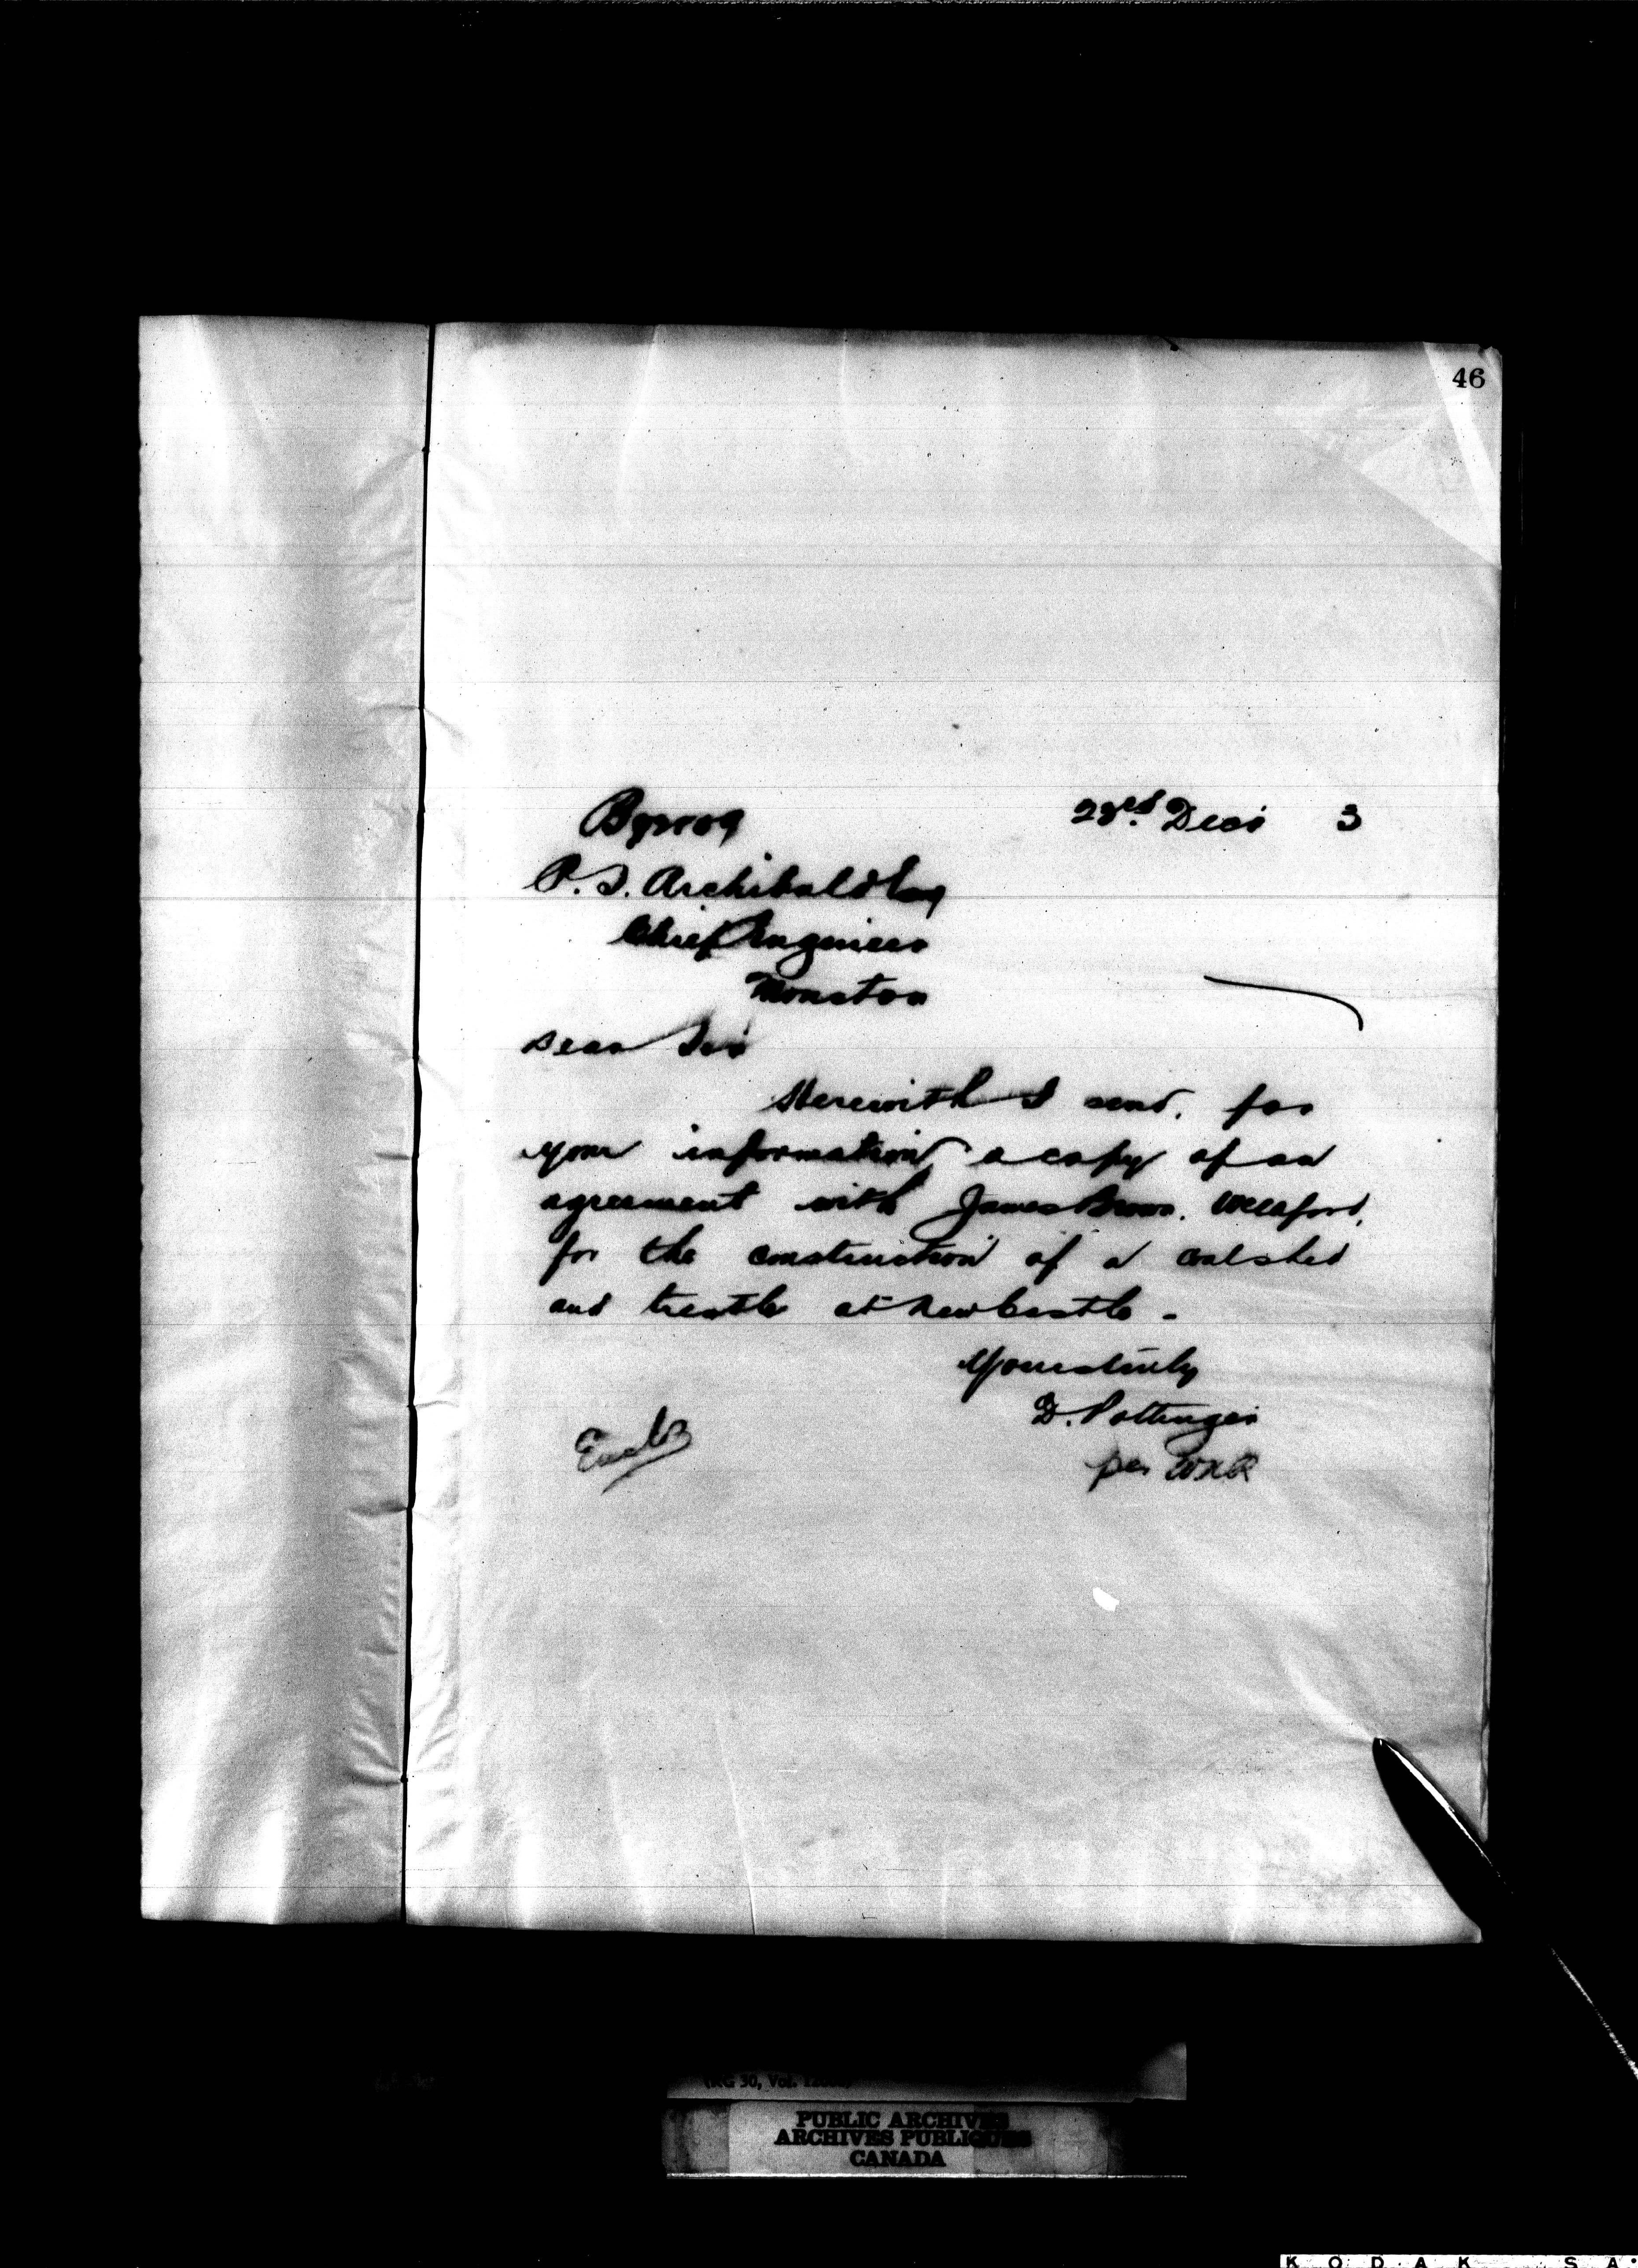 46
23rd Decr 3
P. S. Archibald Esq
Chief Engineer
Moncton
Dear Sir
Herewith I send, for
your information a copy of an
agreement with James Brown, Weldford,
for the construction of a coal shed
and trestle at New Castle -
Yours truly
D. Pottinger
per
(RG 30, Vol.
PUBLIC ARCHIVES
ARCHIVES PUBLIQUES
CANADA
K O D A K S A